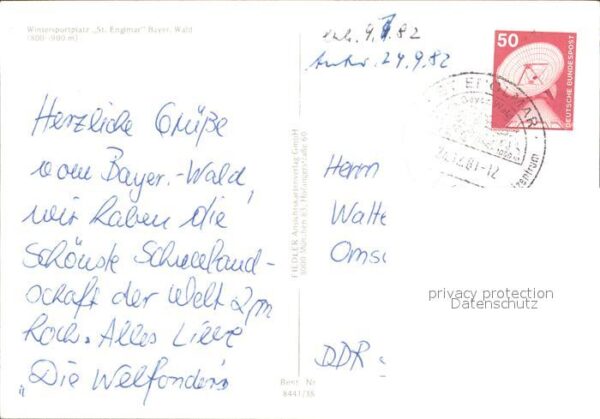 Wintersportplatz „St. Englmar" Bayer. Wald
(800-980 m)
Herzliche Grüße
vom Bayer.-Wald,
wir haben die
schönste Schneeland-
schaft der Welt 2,m
hoch. Alles Liebe
„Die Welfonder's
FIEDLER Ansichtskartenverlag GmbH
8000 München 83,
Best. Nr
8441/38
9. 82
24.9.82
50
DEUTSCHE BUNDESPOST
Bayer. Wald
Herrn
Walte
Omsc
DDR
privacy protection
Datenschutz